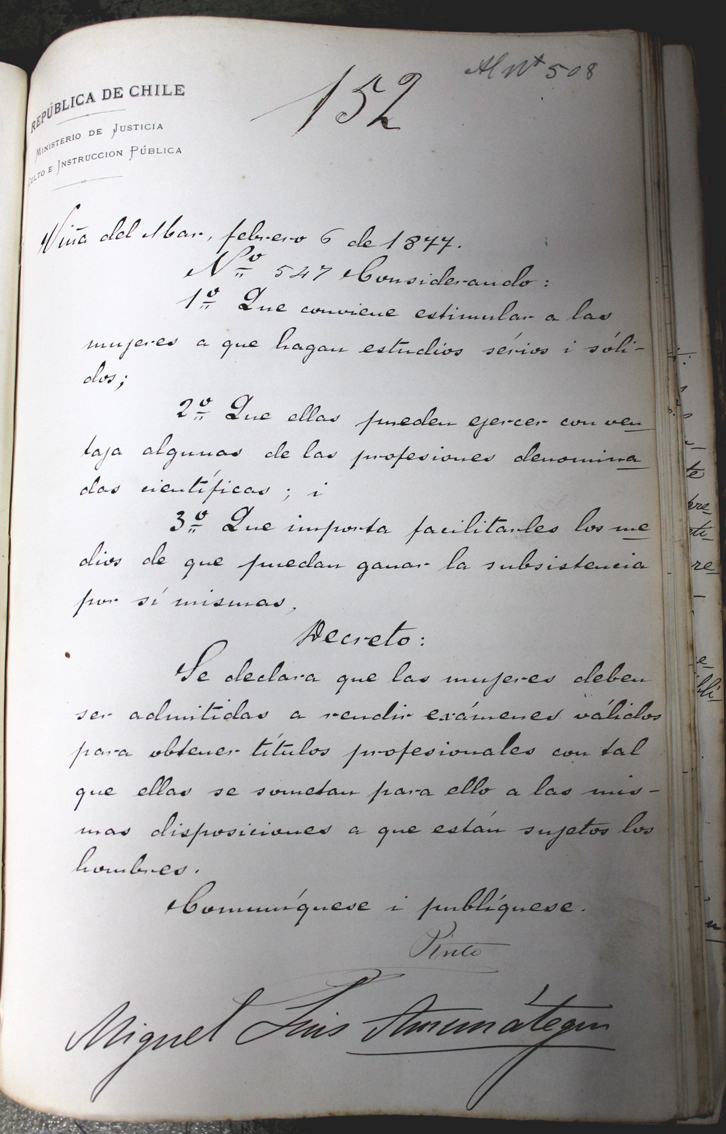 Al Nº 508
152
REPÚBLICA DE CHILE
MINISTERIO DE JUSTICIA
CULTO E INSTRUCCION PÚBLICA
Viña del Mar, febrero 6 de 1877.
Nº 547 Considerando:
1º Que conviene estimular a las
mujeres a que hagan estudios sérios i sóli-
dos;
2º Que ellas pueden ejercer con ven
taja algunas de las profesiones denomina
das científicas; i
3º Que importa facilitarles los me
dios de que puedan ganar la subsistencia
por sí mismas,
Decreto:
Se declara que las mujeres deben
ser admitidas a rendir exámenes válidos
para obtener títulos profesionales con tal
que ellas se sometan para ello a las mis-
mas disposiciones a que están sujetos los
hombres.
Comuníquese i publíquese.
Pinto
Miguel Luis Amunátegui